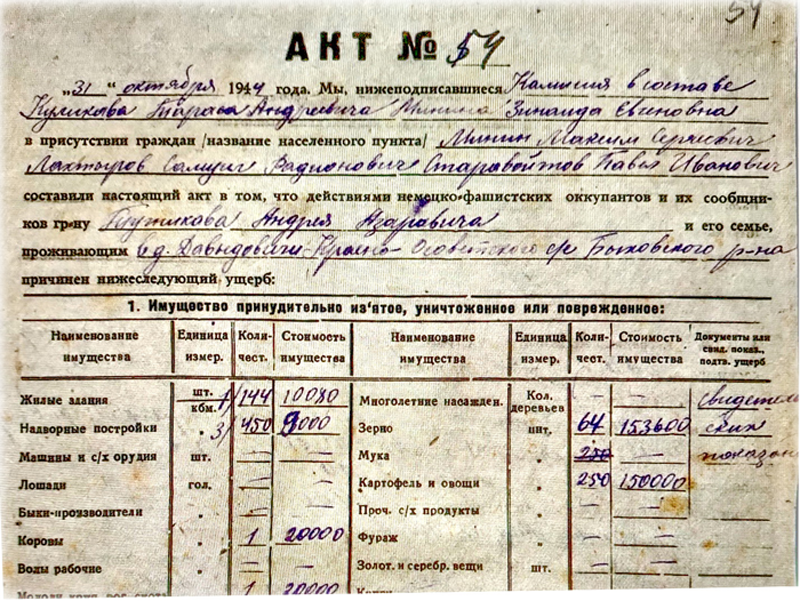 54
АКТ № 54
„31“ октября 1944 года. Мы, нижеподписавшиеся Камисия в составе
Куликова Тараса Андреевича Минина Зинаида Евгеновна
в присутствии граждан /название населенного пункта/ Минин Максим Сергеевич
Лахтыров Радионович Старавойтов Павел Иванович
составили настоящий акт в том, что действиями немецко-фашистских оккупантов и их сообщни-
ков гр-ну Андрея Азаравича и его семье,
проживающим в д. Давыдовичи Красно-Осоветского с/с Быховского р-на
причинен нижеследующий ущерб:
1. Имущество принудительно из'ятое, уничтоженное или поврежденное:
Наименование имущества Единица измер. Коли-чест. Стоимость имущества Наименование имущества Единица измер. Коли-чест. Стоимость имущества Документы или свид. показ., подтв. ущерб
Жилые здания шт. кбм. 1/144 10080 Многолетние насажден. Кол. деревьев — — свидетель
Надворные постройки „ 3/450 9000 Зерно цнт. 64 153600 ских
Машины и с/х орудия шт. — — Мука „ 250 — показан
Лошади гол. — — Картофель и овощи „ 250 150000
Быки-производители „ — — Проч. с/х продукты „ — —
Коровы „ 1 20000 Фураж „ — —
Волы рабочие „ — — Золот. и серебр. вещи шт. — —
1 20000